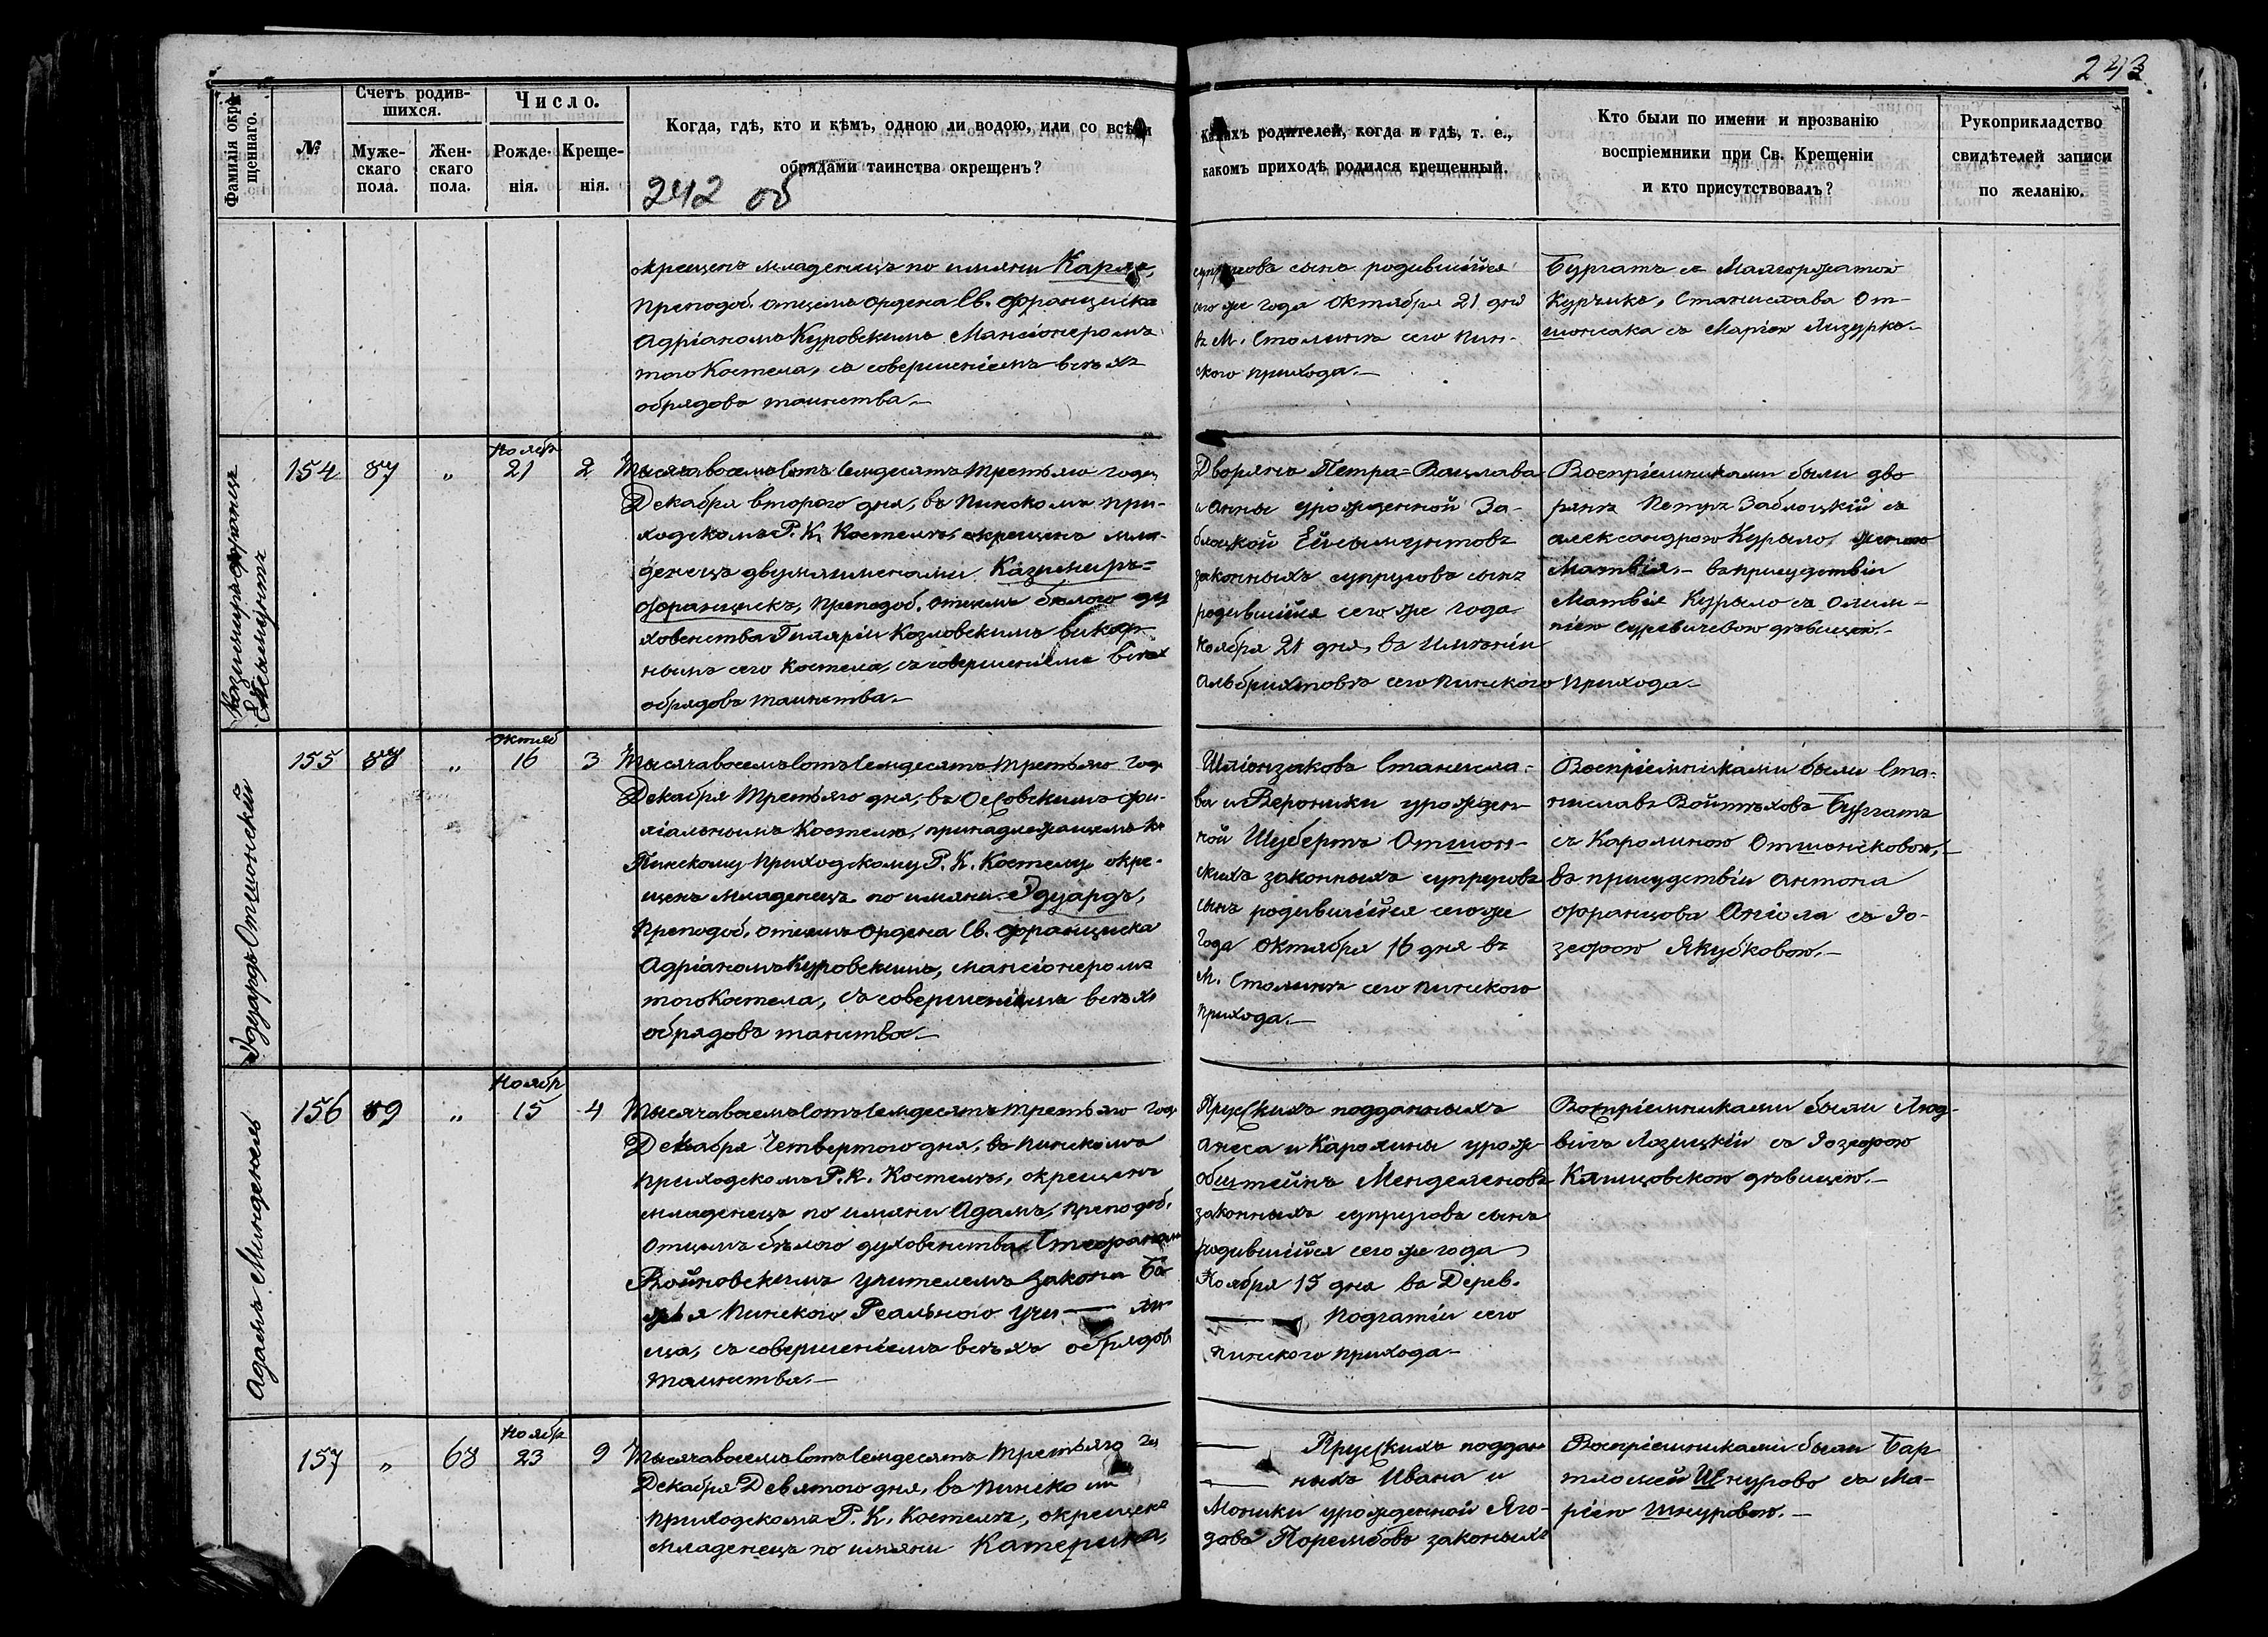 243
Фамилія окре-
щеннаго.
№
Счетъ родив-
шихся.
Муже-
скаго
пола.
Жен-
скаго
пола.
Число.
Рожде-
нія.
Креще-
нія.
Когда, гдѣ, кто и кѣмъ, одною ли водою, или со всѣми
обрядами таинства окрещенъ?
242 об
родителей, когда и гдѣ, т. е.,
какомъ приходѣ родился крещенный.
Кто были по имени и прозванію
воспріемники при Св. Крещеніи
и кто присутствовалъ?
Рукоприкладство
свидѣтелей записи
по желанію.
окрещенъ младенецъ по имяни
Преподоб. отцемъ ордена Св. Франциска
Адріаномъ Куровскимъ Мансіонеромъ
того Костела, съ совершеніемъ всѣхъ
обрядовъ таинства.—
супруговъ сынъ родившійся
сего же года Октября 21 дня
въ М. Столинѣ сего Пин-
ского прихода.—
Бургатъ съ
Станислава От-
шонсака съ Маріею
Казимиръ Францискъ
Ейсымунтъ
154
87
„
Ноябр
21
2
Тысяча восемъ Сотъ Семдесятъ Третьяго года
Декабря второго дня, въ Пинскомъ при-
ходскомъ Р. К. Костелѣ, окрещенъ мла-
денецъ двумя именами Казимиръ=
Францискъ, Преподоб. отцемъ бѣлого ду
ховенства Гиляріи Козловскимъ викар
нымъ сего Костела, съ совершеніемъ всѣхъ
обрядовъ таинства.—
Дворянъ Петра=Вацлава
и Анны урожденной За-
блоцкой Ейсымунтовъ
законныхъ супруговъ сынъ
родившійся сего же года
Ноября 21 дня, въ Имѣніи
Альбрихтовѣ сего Пинского прихода.—
Воспріемниками были дво
рянъ Петръ Заблоцкій съ
Александрою Курыло, женою
Матвія,— въ присудствіи
Матвія Курыло съ Олим-
піею дѣвицею.—
Эдуардъ Отшонскій
155
88
„
Октяб
16
3
Тысяча восемъ Сотъ Семдесятъ Третьяго год
Декабря Третьяго дня, въ Осовскимъ фи-
ліальнымъ Костелѣ, принадлежащемъ къ
Пинскому Приходскому Р. К. Костелу окре-
щенъ младенецъ по имяни Эдуардъ,
Преподоб. отцемъ Ордена Св. Франциска
Адріаномъ Куровскимъ, мансіонеромъ
того Костела, съ совершеніемъ всѣхъ
обрядовъ таинства.—
Шліонзаковъ Станисла-
ва и Вероники урожден-
ной Шубертъ Отшон-
скихъ законныхъ супруговъ
сынъ родившійся сего же
года Октября 16 дня въ
М. Столинѣ сего Пинского
прихода.—
Воспріемниками были Ста-
ниславъ Войтѣховъ Бургатъ
съ Каролиною Отшонсковою,—
въ присудствіи Антона
Францова съ Іо-
зефою Якубковою.—
Адамъ Менделень
156
89
„
Ноябр
15
4
Тысяча восемъ Сотъ Семдесятъ Третьяго год
Декабря Четвертого дня, въ Пинскомъ
приходскомъ Р. К. Костелѣ, окрещенъ
младенецъ по имяни Адамъ, преподоб.
отцемъ бѣлого духовенства Стефаном
Войновскимъ учителемъ закона Бо
жья Пинского Реального учи— ли
ща, съ совершеніемъ всѣхъ обрядов
таинства.—
Прусскихъ подданныхъ
и Каролины урож
Менделеновъ
законныхъ супруговъ сынъ
родившійся сего же года
Ноября 15 дня въ Дерев.
— Погратіи сего
Пинского прихода.—
Воспріемниками были Люд-
вигъ Лозицкій съ Іозефою
дѣвицею.—
157
„
68
Ноябр
23
9
Тысяча восемъ Сотъ Семдесятъ Третьяго го
Декабря Девятого дня, въ Пинско м
приходскомъ Р. К. Костелѣ, окрещена
младенецъ по имяни Катерина,
— Прусскихъ поддан
— ныхъ Ивана и
Моники урожденной Яго-
дова Порембовъ законныхъ
Воспріемниками были Бар
тломей Шнурово съ Ма-
ріею Шнуровою.—